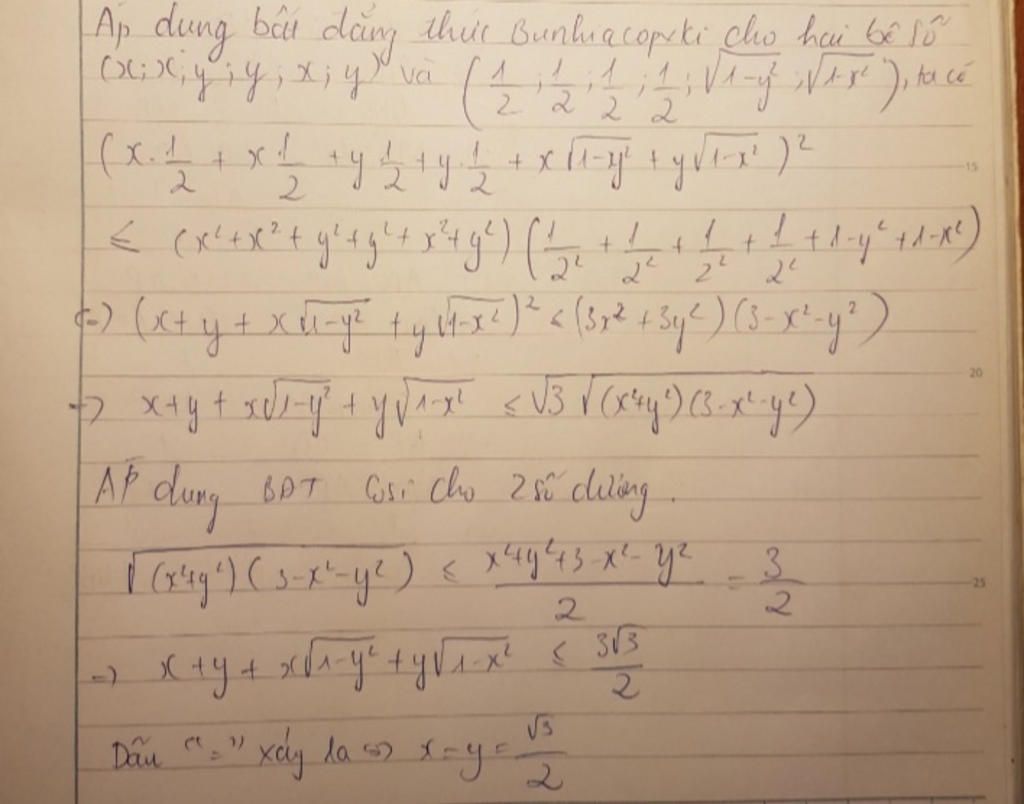 Áp dung bất đẳng thức Bunhiacopxki cho hai bộ số
(x; x; y; y; x; y) và (1/2; 1/2; 1/2; 1/2; √(1-y²); √(1-x²)), ta có
(x·1/2 + x 1/2 + y 1/2 + y·1/2 + x√(1-y²) + y√(1-x²))²
15
≤ (x² + x² + y² + y² + x² + y²)(1/2² + 1/2² + 1/2² + 1/2² + 1-y² + 1-x²)
(=) (x + y + x√(1-y²) + y√(1-x²))² ≤ (3x² + 3y²)(3 - x² - y²)
20
=) x + y + x√(1-y²) + y√(1-x²) ≤ √3 √((x²+y²)(3-x²-y²))
ÁP dung BĐT Cosi cho 2 số dương.
√((x²+y²)(3-x²-y²)) ≤ (x²+y²+3-x²-y²)/2 = 3/2
25
=) x + y + x√(1-y²) + y√(1-x²) ≤ 3√3/2
Dấu "=" xảy ra (=) x = y = √3/2